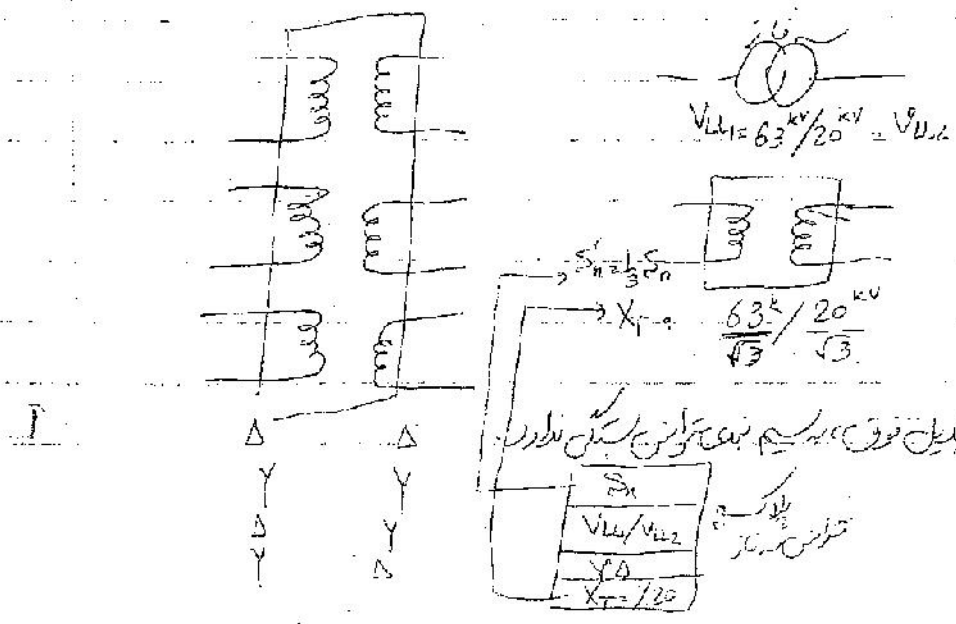 V_LL1 = 63^kV / 20^kV = V_LL2
S'n = 1/3 Sn
X_T
63^k/√3 / 20^kV/√3
Δ Δ
Y Y
Δ Y
Y Δ
فوق، به سیم بندی ترانس بستگی ندارد
Sn
V_LL1/V_LL2
YΔ
X_T = /20
پلاک
ترانس سه فاز